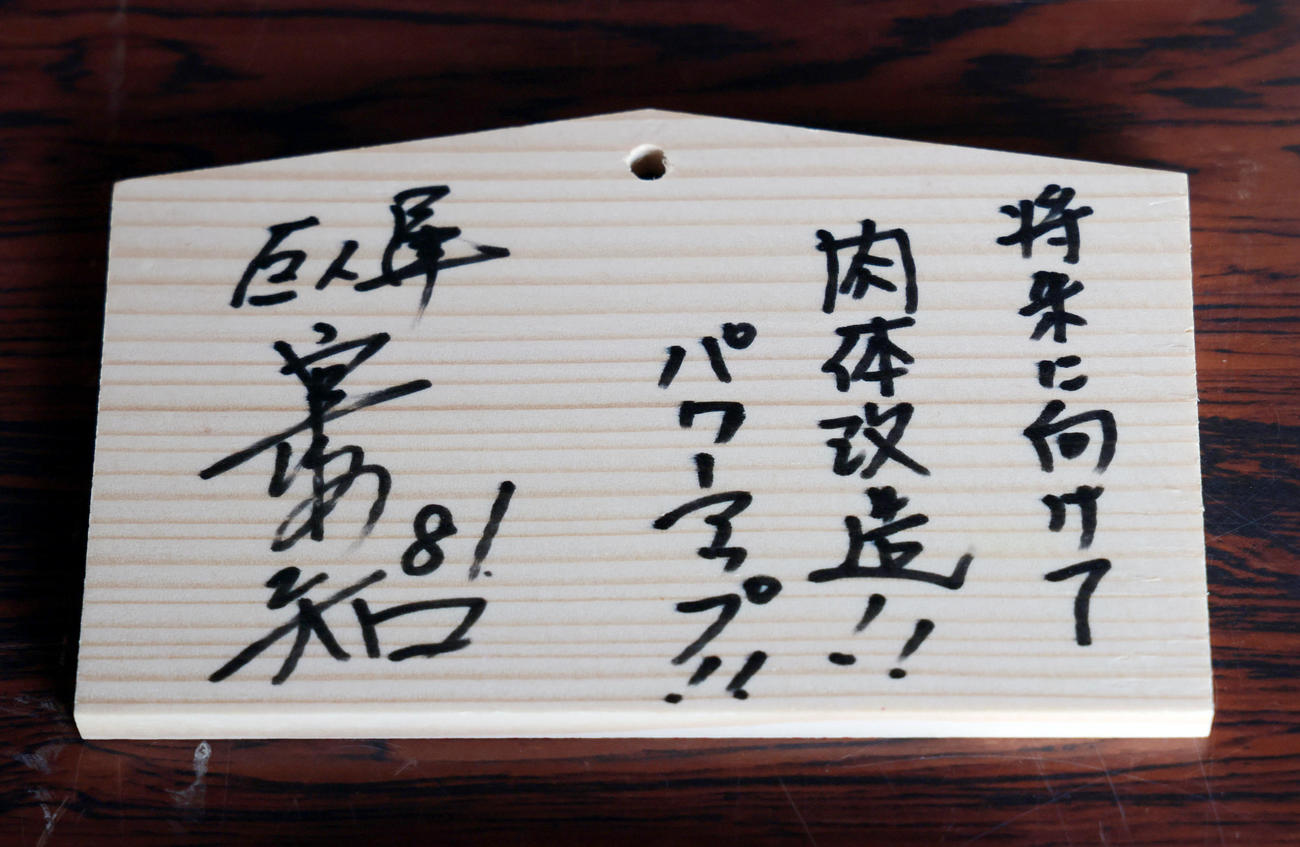 将来に向けて
肉体改造!!
パワーアップ!!
巨人軍